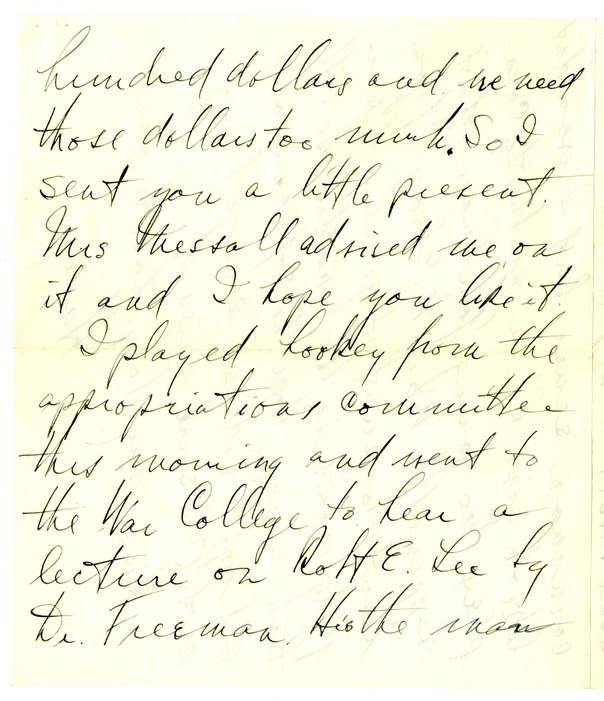 hundred dollars and we need
those dollars too much. So I
sent you a little present.
Mrs Messall advised me on
it and I hope you like it.
I played hookey from the
appropriations committee
this morning and went to
the War College to hear a
lecture on Robt E. Lee by
Dr. Freeman. He's the man